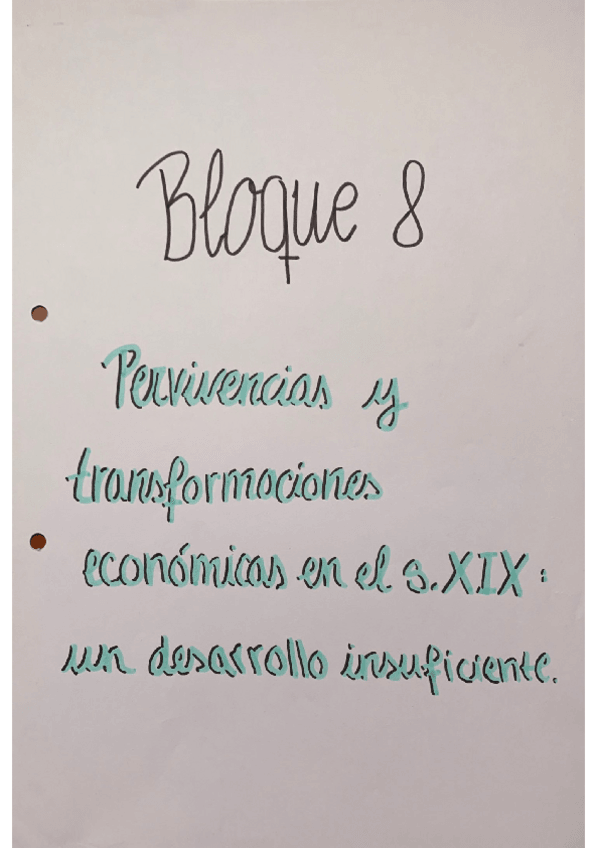 Bloque 8
Pervivencias y
transformaciones
económicas en el s.XIX:
un desarrollo insuficiente.